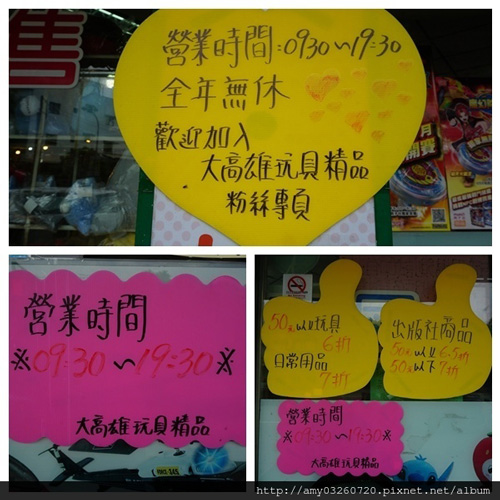 售
營業時間:0930~19:30
全年無休
歡迎加入
大高雄玩具精品
粉絲專頁
營業時間
※09:30~19:30※
大高雄玩具精品
50元以上玩具
6折
日常用品
7折
出版社商品
50元以上6.5折
50元以下7折
營業時間
※09:30~19:30※
大高雄玩具精品
http://amy03260720.pixnet.net/album